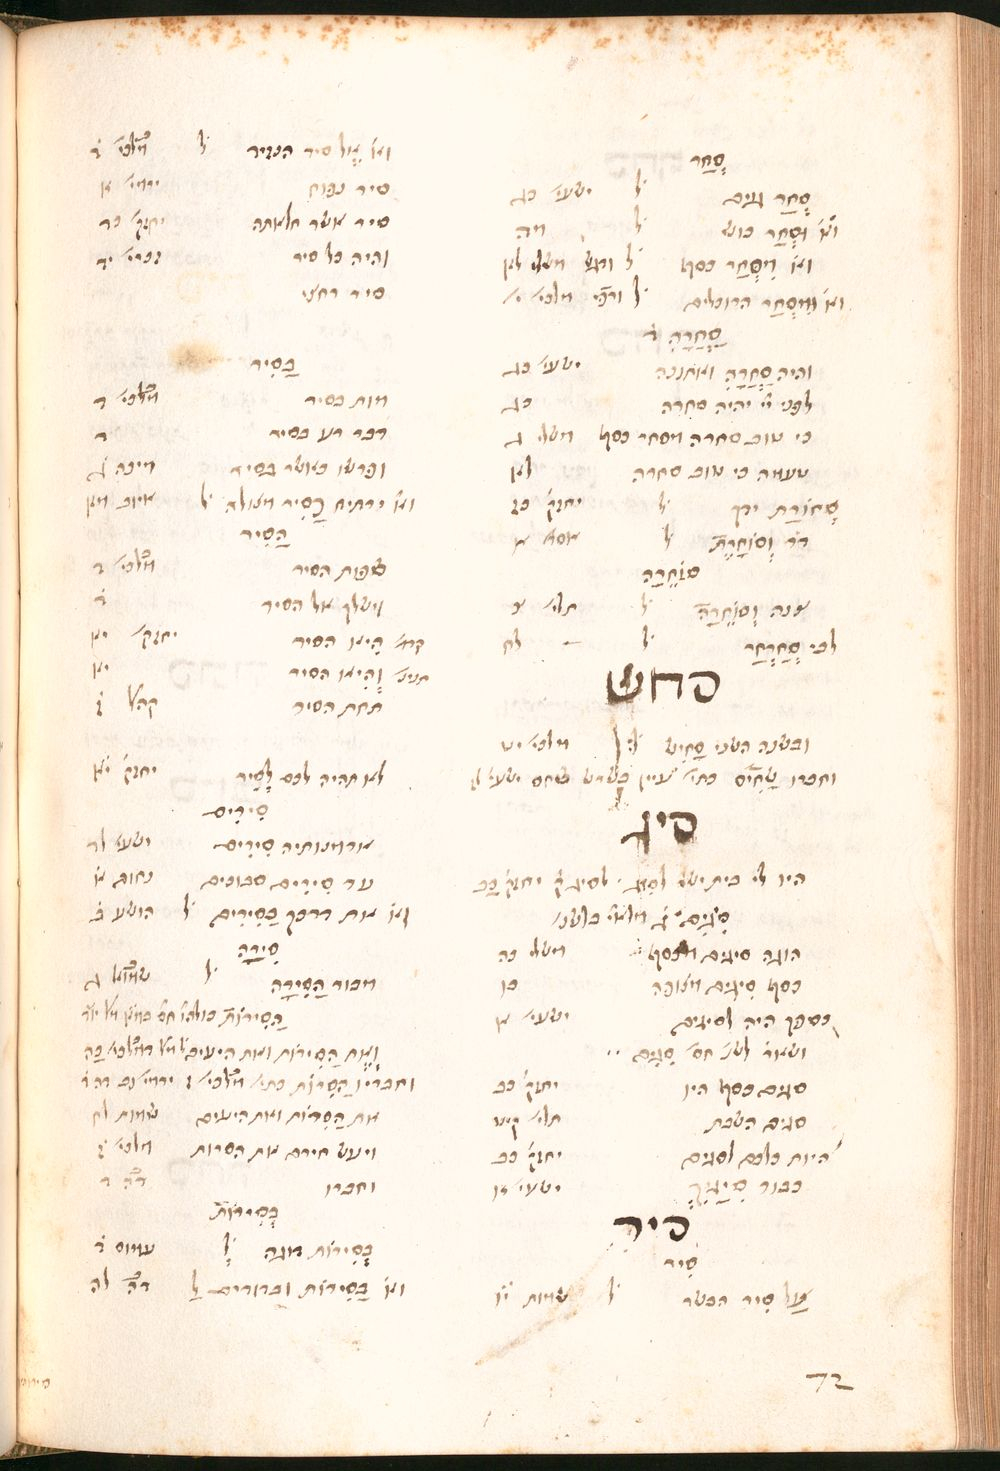 סְחַר
סְחַר גוים ל ישעי׳ כג
וא׳ וּסְחַר כוש ל מה
וא׳ מִסְחַר כסף ל משלי
וא׳ וּמִסְחַר הרוכלים ל מלכי׳ י׳
סַחְרָהּ
והיה סַחְרָהּ ואתננה ישעי׳ כג
לפני יי׳ יהיה סחרה כג
כי טוב סחרה מסחר כסף משלי ג
טעמה כי טוב סחרה לא
סְחוֹרַת ידך ל יחזק׳ כז
דר וְסוֹחָרֶת ל אסת׳ א
סוֹחֵרָה
צנה וְסוֹחֵרָה ל תלי׳ צ
לבי סְחַרְחַר ל לח
סחש
ובשנה השני׳ סָחִישׁ ל מלכי׳ יט
וחברו שָׁחִיס כתי׳ עיין בשרש שחס ישעי׳ ל
סיג
היו לי בית ישר׳ לסוג לסיג ק׳ יחזק׳ כב
סִיגִים
הגה סיגים מכסף משלי כה
כסף סִיגִים מצופה כו
כספך היה לסיגים ישעי׳ א
ושאר׳ לשנ׳ חס׳ סִגִים
סגים כסף היו יחזק׳ כב
סגים השבת תלי׳ קיט
היות כלכם לסגים יחזק׳ כב
כבור סִיגָיִךְ ישעי׳
סיר
סִיר
עַל סִיר הבשר ל שמות יו
וא׳ אֶל סיר הנזיד ל מלכי׳ ד
סיר נפוח ירמי׳ א
סיר אשר חלאתה יחזק׳ כד
והיה כל סיר זכרי׳ יד
סיר רחצי
בַּסִּיר
מות בסיר מלכי׳ ד
דבר רע בסיר ד
ופרשו כאשר בסיר מיכה ג
וא׳ ירתיח כַסִּיר מצולה ל איוב מא
הַסִּיר
שפות הסיר מלכי׳ ד
וישלך אל הסיר ד
קדמ׳ הִיא הסיר יחזק׳ יא
תנינ׳ וְהִיא הסיר יא
תחת הסיר קהל׳ ז
לא תהיה לכם לְסִיר יחזק׳ יא
סִירִים
ארמנותיה סִירִים ישעי׳ לד
עד סִירִים סבוכים נחום א
וא׳ את דרכך בַסִּירִים ל הושע ב
סִירָה
מבור הַסִּירָה ל שמוא׳ ג
הַסִּירוֹת
ואֶת הַסִּירוֹת ואת היעים
וחבריו הַסִּרוֹת כתי׳ מלכי׳ ז ירמי׳ נב
את הַסִּרוֹת ואת היעים שמות לח
ויעש חירם את הסרות מלכי׳ ז
וחברו דה׳ ד
בְּסִירוֹת
בְּסִירוֹת דוגה ל עמוס ד
וא׳ בַּסִּירוֹת וברודים ל דה׳ לה
72